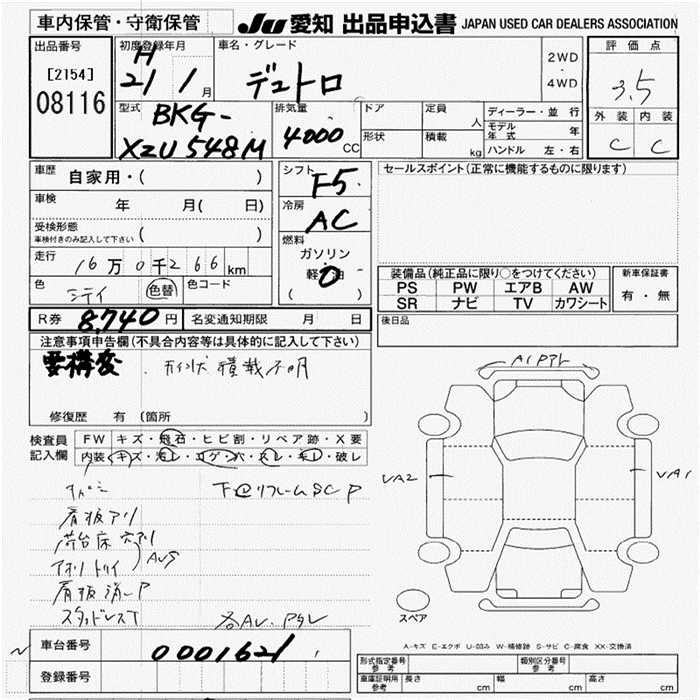 車内保管・守衛保管
JU 愛知 出品申込書 JAPAN USED CAR DEALERS ASSOCIATION
出品番号
[2154]
08116
初度登録年月
H
21 / 1 月
車名・グレード
デュトロ
2WD
・
4WD
評価点
3.5
外装 内装
C C
型式
BKG-
XZU548M
排気量
4000 CC
ドア
形状
定員
人
積載
kg
ディーラー・並行
モデル年式 年
ハンドル 左・右
車歴
自家用・( )
車検
年 月( 日)
受検形態
車検付きのみ記入して下さい ( )
走行
16万0千266km
色
シティ
色替
色コード
シフト
F5
冷房
AC
燃料
ガソリン
軽油
( )
セールスポイント(正常に機能するものに限ります)
装備品(純正品に限り○をつけてください)
PS PW エアB AW
SR ナビ TV カワシート
新車保証書
有・無
後日品
R券 8,740円 名変通知期限 月 日
注意事項申告欄(不具合内容等は具体的に記入して下さい)
要構変 . 形状積載不明
修復歴 有 (箇所 )
検査員記入欄
FW キズ・飛石・ヒビ割・リペア跡・X要
内装 キズ・汚レ・コゲ・穴・スレ・キレ・破レ
下回リフレームSC P
肩板アリ
荷台床穴アリ
AUS
肩板消しP
スタッドレスT
A1
VA2
VA1
スペア
A-キズ E-エクボ U-凹み W-補修跡 S-サビ C-腐食 XX-交換済
車台番号
0001621
登録番号
型式指定番号 参考
類別区分番号 参考
車庫証明用 参考
長さ cm 幅 cm 高さ cm